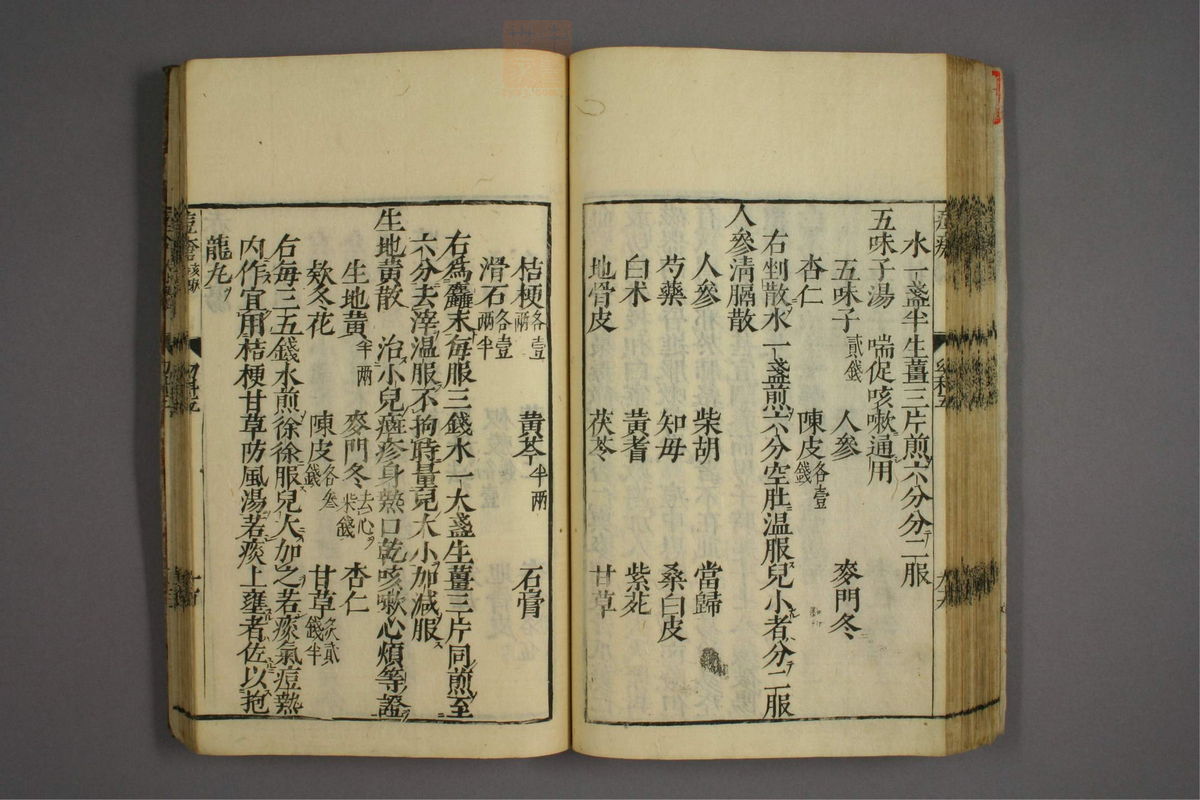 水一盞半生薑三片煎六分分二服
五味子湯　喘促咳嗽通用
五味子貳錢　人參　麥門冬
杏仁　陳皮各壹錢
右剉散水一盞煎六分空肚温服兒小者分二服
人參清膈散
人參　柴胡　當歸
芍藥　知母　桑白皮
白术　黃耆　紫菀
地骨皮　茯苓　甘草
桔梗各壹兩　黃芩半兩　石膏
滑石各壹兩半
右為麤末每服三錢水一大盞生薑三片同煎至
六分去滓温服不拘時量兒大小加減服
生地黃散　治小兒㿀疹身熱口乾咳嗽心煩等證
生地黃半兩　麥門冬去心柒錢　杏仁
欵冬花　陳皮各叄錢　甘草炙貳錢半
右每三五錢水煎徐徐服兒大加之若痰氣痘熱
内作宜用桔梗甘草防風湯若痰上壅者佐以抱
龍丸